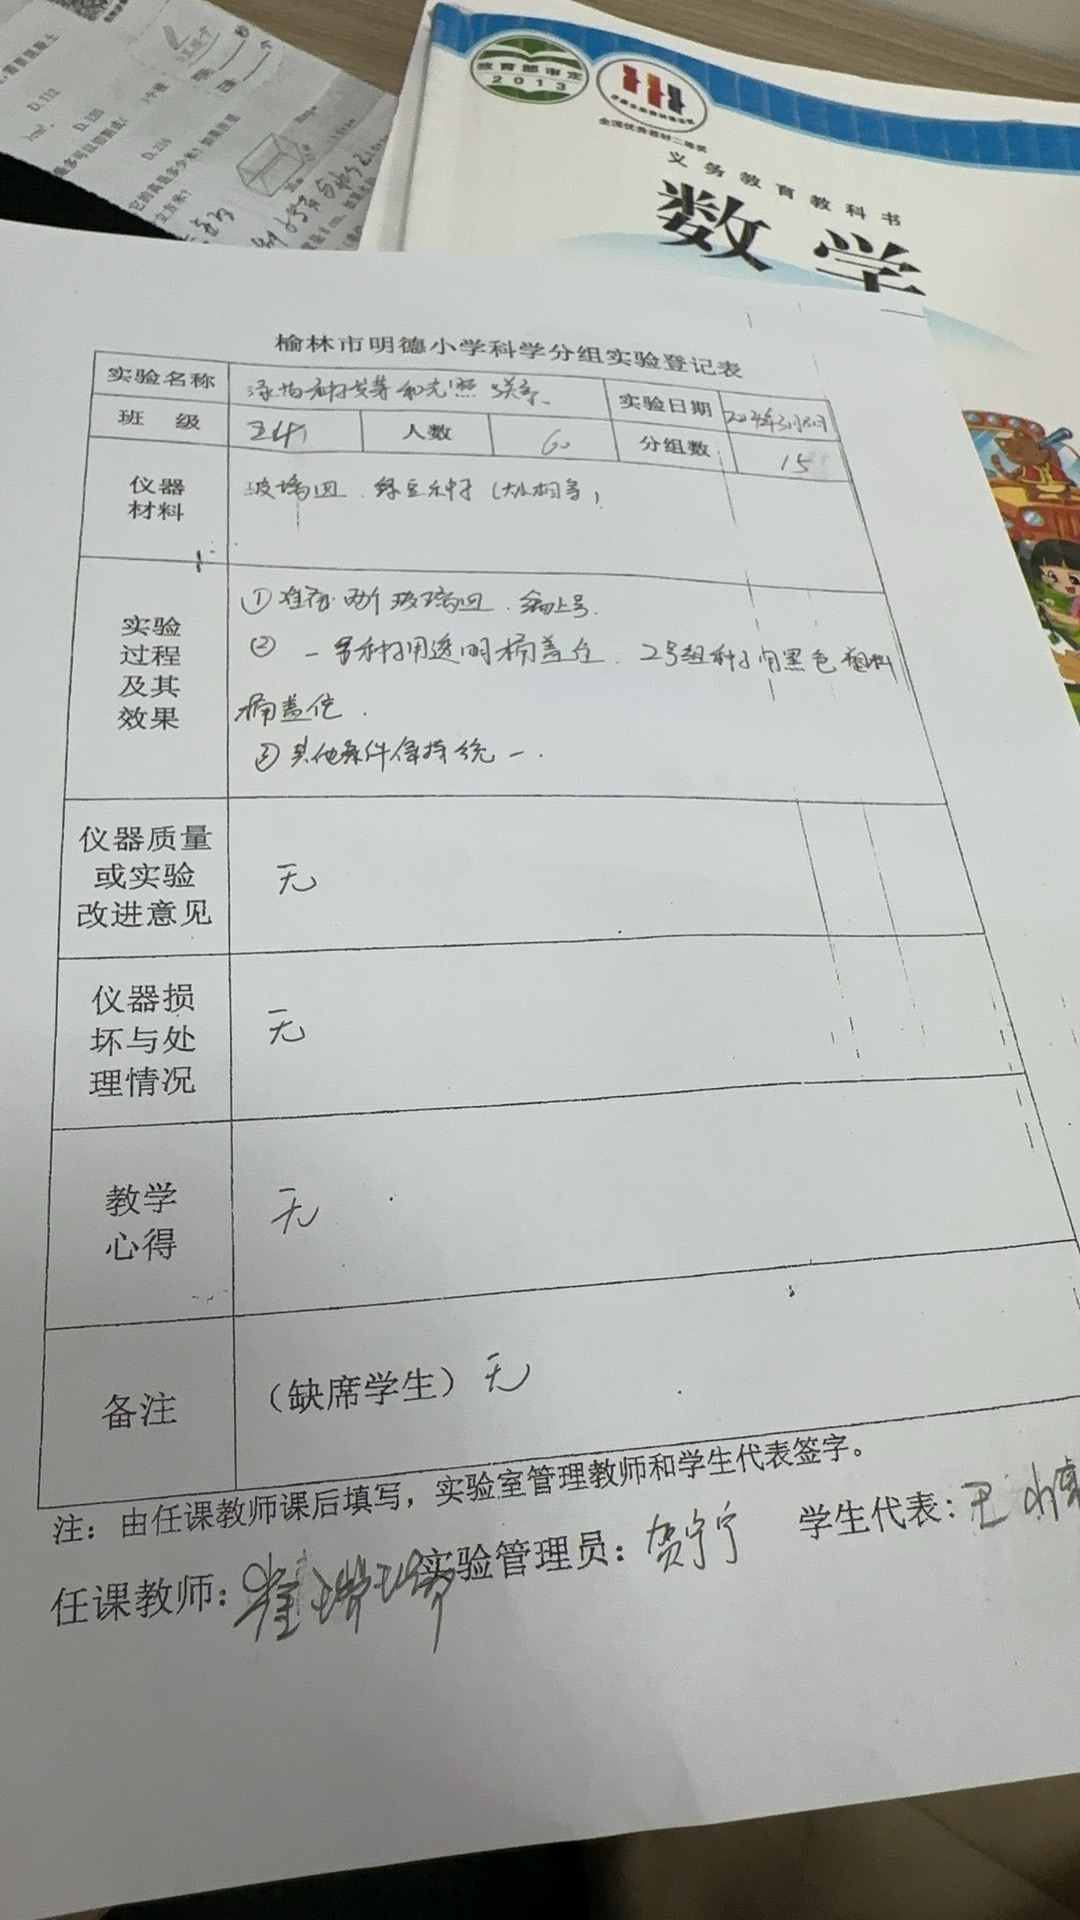 教育部审定
2013
全国优秀教材二等奖
义务教育教科书
数学
D.112
D.126
D.216
榆林市明德小学科学分组实验登记表
实验名称 绿豆种子发芽和光照 关系 实验日期 2024年3月8日
班 级 人数 60 分组数 15
仪器材料 玻璃皿、绿豆种子(大小相等)
实验过程及其效果
①准备两个玻璃皿、编上号.
② 一号种子用透明桶盖住、2号组种子用黑色塑料
桶盖住.
③其他条件保持统一.
仪器质量或实验改进意见 无
仪器损坏与处理情况 无
教学心得 无
备注 (缺席学生) 无
注:由任课教师课后填写,实验室管理教师和学生代表签字。
任课教师: 实验管理员:贺宁宁 学生代表: